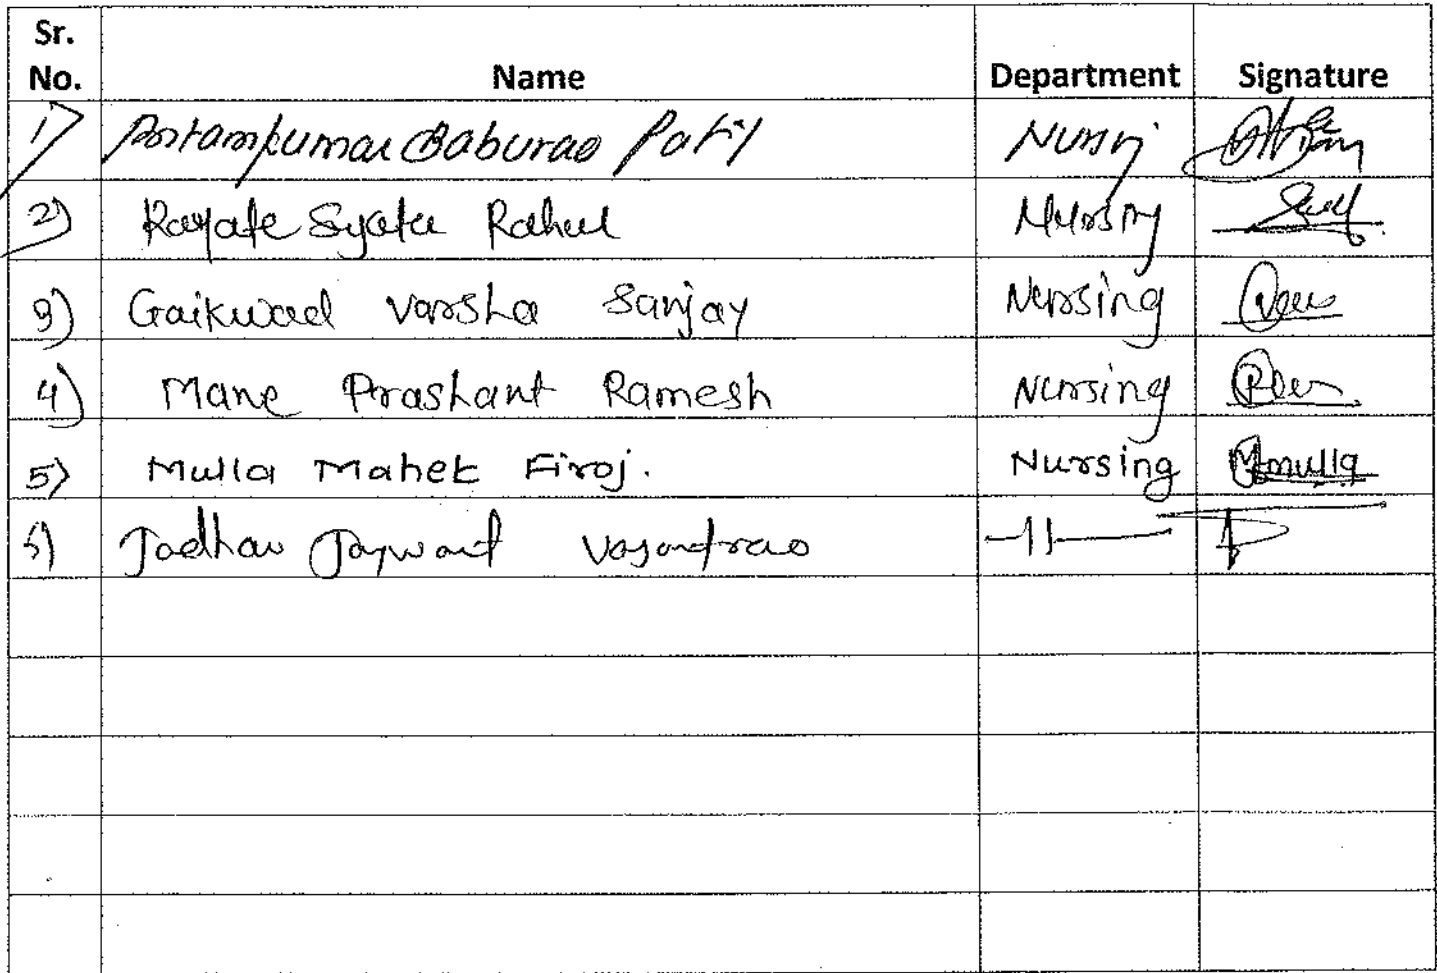 Sr. No. Name Department Signature
1) Baburao Patil Nursing
2) Rahul Nursing
3) Gaikwad Varsha Sanjay Nursing
4) Mane Prashant Ramesh Nursing
5) Mulla Mahek Firoj. Nursing Mmulla
6) Jadhav Jaywant Vasantrao -11-